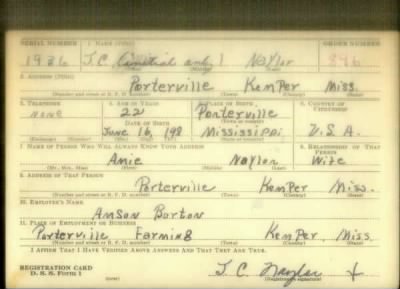 SERIAL NUMBER 1. NAME (Print) ORDER NUMBER
1936 J.C. (initial only) Naylor 846
2. ADDRESS (Print)
Porterville Kemper Miss.
(Number and street or R. F. D. number) (Town) (County) (State)
3. TELEPHONE 4. AGE IN YEARS 5. PLACE OF BIRTH 6. COUNTRY OF CITIZENSHIP
none 22 Porterville
DATE OF BIRTH (Town or county)
June 16, 1918 Mississippi U.S.A.
(Exchange) (Number) (Mo.) (Day) (Yr.) (State or country)
7. NAME OF PERSON WHO WILL ALWAYS KNOW YOUR ADDRESS 8. RELATIONSHIP OF THAT PERSON
Amie Naylor Wife
(Mr., Mrs., Miss) (First) (Middle) (Last)
9. ADDRESS OF THAT PERSON
Porterville Kemper Miss.
(Number and street or R. F. D. number) (Town) (County) (State)
10. EMPLOYER'S NAME
Anson Barton
11. PLACE OF EMPLOYMENT OR BUSINESS
Porterville Farming Kemper, Miss.
(Number and street or R. F. D. number) (Town) (County) (State)
I AFFIRM THAT I HAVE VERIFIED ABOVE ANSWERS AND THAT THEY ARE TRUE.
REGISTRATION CARD
D. S. S. Form 1 (over) J. C. Naylor X
(Registrant's signature)